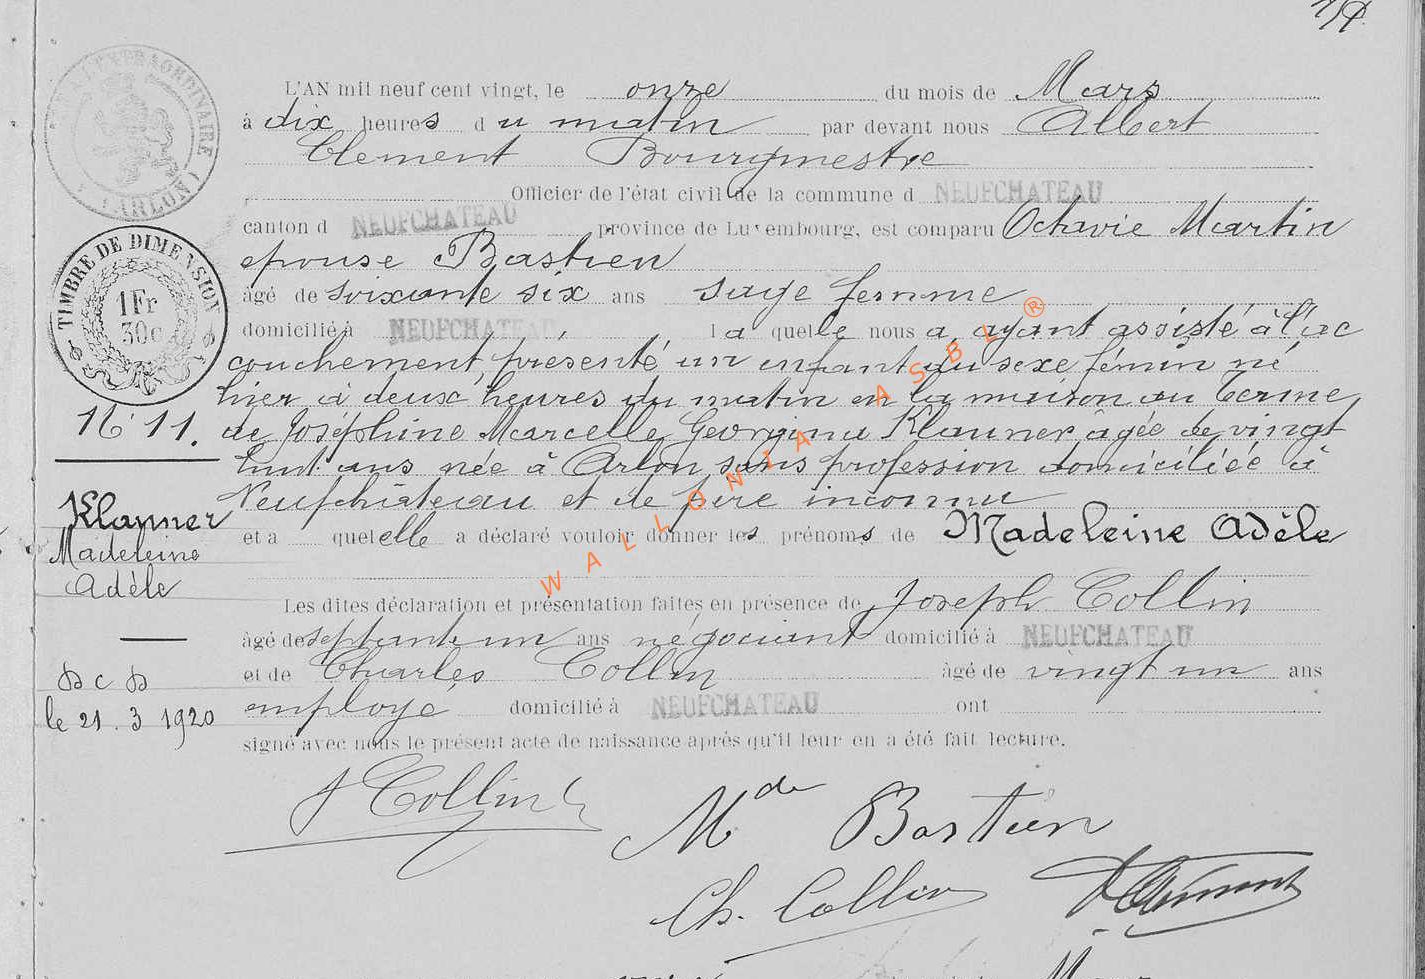 TIMBRE EXTRAORDINAIRE
(ARLON)
TIMBRE DE DIMENSION
1Fr
30c
L'AN mil neuf cent vingt, le onze du mois de Mars
à dix heures du matin par devant nous Albert
Clement Bourgmestre
Officier de l'état civil de la commune d NEUFCHATEAU
canton d NEUFCHATEAU province de Luxembourg, est comparu Octavie Martin
epouse Bastien
âgé de soixante six ans sage femme
domicilié à NEUFCHATEAU, laquelle nous a, ayant assisté à l'ac
couchement, présenté un enfant du sexe fémin né
hier à deux heures du matin en la maison au Terme
N° 11. de Joséphine Marcelle Georgina Klauner âgée de vingt
huit ans née à Arlon, sans profession domiciliée à
Neufchâteau et de père inconnu
et a quelle a déclaré vouloir donner les prénoms de Madeleine Adèle
Klauner
Madeleine
Adèle
Les dites déclaration et présentation faites en présence de Joseph Collin
âgé de septante un ans négociant domicilié à NEUFCHATEAU
et de Charles Collin âgé de vingt un ans
employe domicilié à NEUFCHATEAU ont
signé avec nous le présent acte de naissance après qu'il leur en a été fait lecture.
Dcd
le 21.3 1920
J Collin
Mde Bastien
Ch. Collin
AClément
WALLONIA ASBL ®